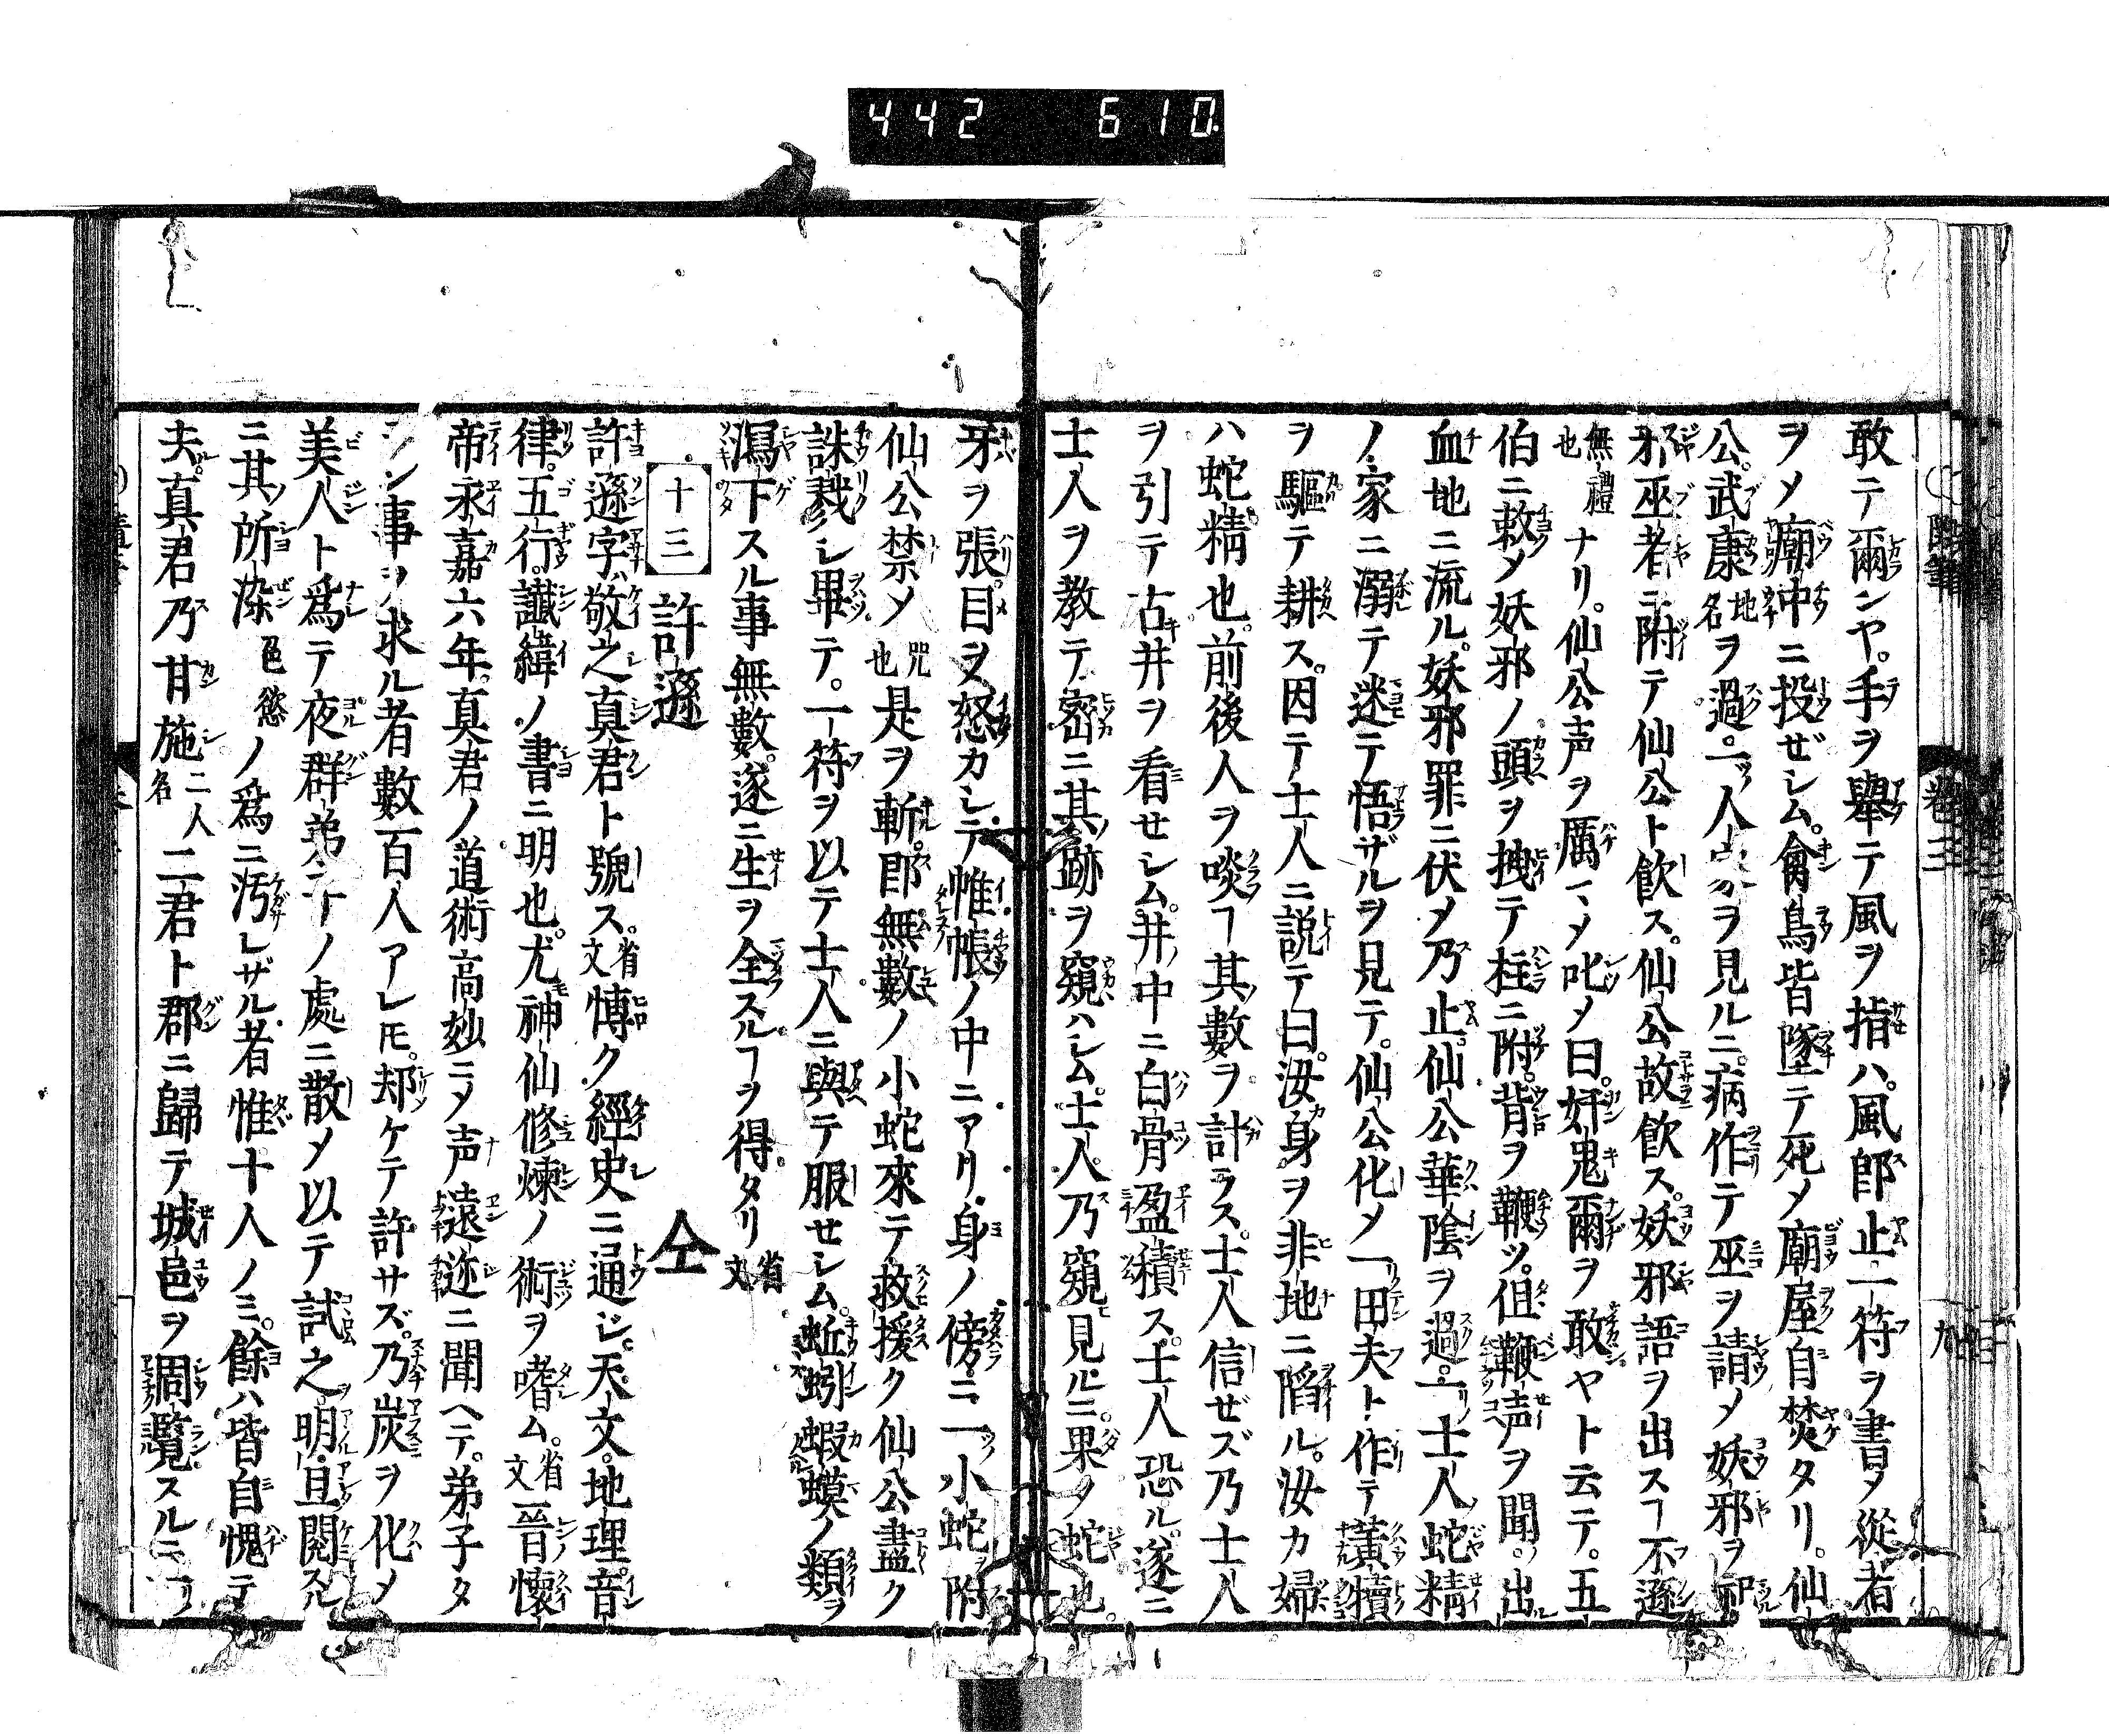 442 610
敢テ爾ンヤ。手ヲ擧テ風ヲ指ハ。風即止。一符ヲ書メ從者
ヲメ廟中ニ投ゼシム。禽鳥皆墜テ死メ廟屋自焚タリ。仙
公。武康地名ヲ過。一人ヲ見ルニ。病作テ巫ヲ請メ妖邪ヲ
邪巫者ニ附テ仙公ト飲ス。仙公故飲ス。妖邪語ヲ出スヿ不遜
無禮也ナリ。仙公声ヲ厲マメ叱メ曰。奸鬼爾ヲ敢ヤト云テ。五
伯ニ敕メ妖邪ノ頭ヲ拽テ柱ニ附。背ヲ鞭ツ。但鞭声ヲ聞。出
血地ニ流ル。妖邪罪ニ伏メ乃止。仙公華陰ヲ過。一士人蛇精
ノ家ニ溺テ迷テ悟ザルヲ見テ。仙公化メ一田夫ト作テ黃犢
ヲ驅テ耕ス。因テ士人ニ説テ曰。汝身ヲ非地ニ陷ル。汝カ婦
ハ蛇精也。前後人ヲ啖ヿ其數ヲ計ラス。士人信ゼズ乃士人
ヲ引テ古井ヲ看セシム。井中ニ白骨盈積ス。士人恐ル。遂ニ
士人ヲ教テ密ニ其跡ヲ窺ハシム。士人乃窺見ルニ。果メ蛇也。
牙ヲ張目ヲ怒カシテ帷帳ノ中ニアリ。身ノ傍ニ一小蛇附
仙公禁メ咒也是ヲ斬。即無數ノ小蛇來テ救援ク仙公盡ク
誅戮シ畢テ。一符ヲ以テ士人ニ與テ服セシム。蚯蚓蝦蟆ノ類ヲ
瀉下スル事無數。遂ニ生ヲ全スルヿヲ得タリ省文
十三 許遜 仝
許遜字ハ敬之真君ト號ス。省文博ク經史ニ通シ。天文。地理。音
律。五行。讖緯ノ書ニ明也。尤神仙修煉ノ術ヲ嗜ム。省文晉懷
帝永嘉六年。真君ノ道術高妙ニメ声遠迩ニ聞ヘテ。弟子タ
ラン事ヲ求ル者數百人アレ𪜈。却ケテ許サズ。乃炭ヲ化メ
美人ト爲テ夜群弟子ノ處ニ散メ以テ試之。明旦閲スル
ニ其所染色慾ノ爲ニ汚レザル者惟十人ノミ。餘ハ皆自愧テ
去。真君乃甘施二人名二君ト郡ニ歸テ城邑ヲ周覽スルニ一
卷三
九